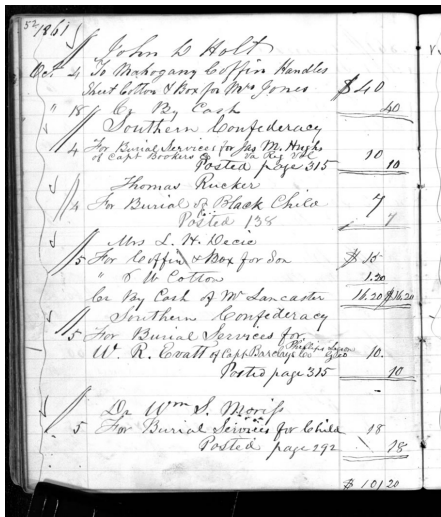 52
1861
John D Holt
Oct 4 To Mahogany Coffin Handles
Sheet Cotton & Box for Mrs Jones $40
" 18 Cr By Cash 40
Southern Confederacy
4 For Burial Services for Jas M. Hughs
of Capt Bookers Co Va Reg Vol 10
Posted page 315 10
Thomas Rucker
4 For Burial of Black Child 7
Posted 138 7
Mrs L. H. Decie
5 For Coffin & Box for Son $15
" 8 W Cotton 1.20
Cr By Cash of Mr Lancaster 16.20 $16.20
Southern Confederacy
5 For Burial Services for
W. R. Evatt of Capt Barclays Co Phillips Legion 10.
Posted page 315 10
Dr Wm S. Moriss
5 For Burial Services for Child 18
Posted page 292 18
$101.20